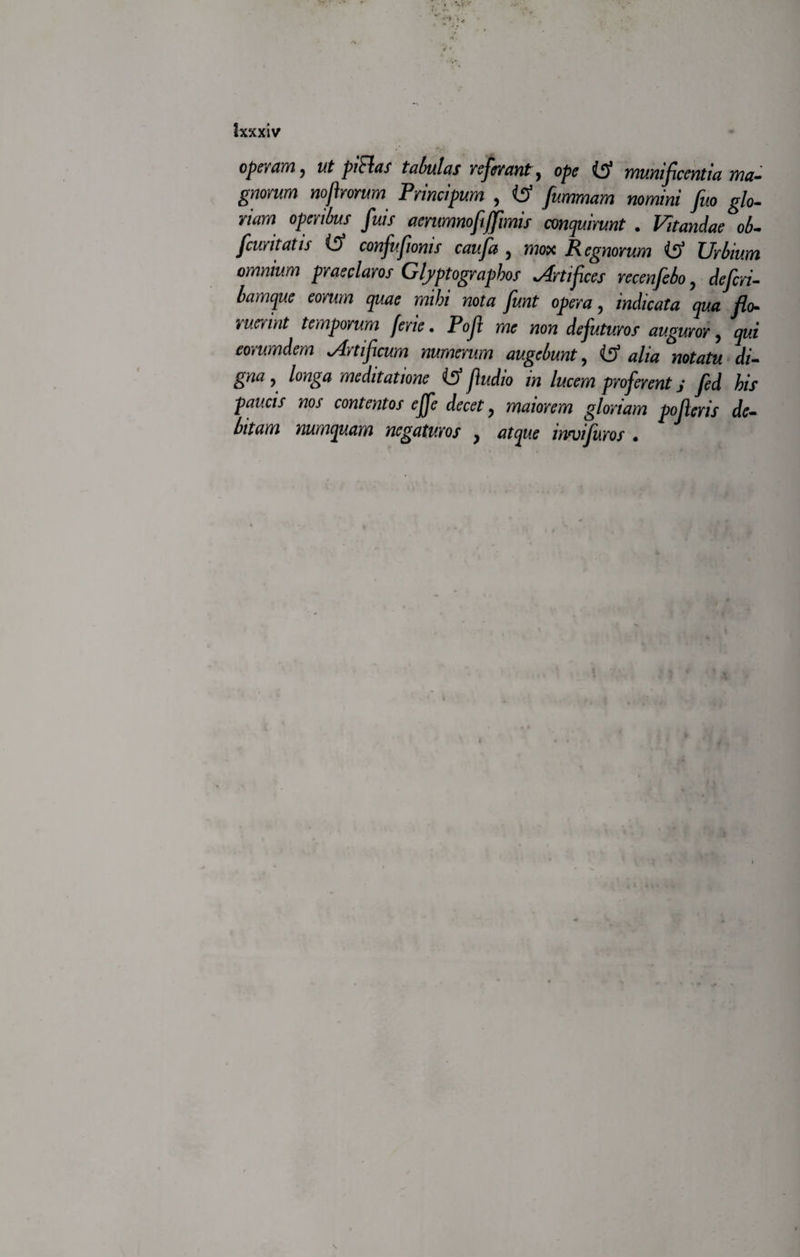 lxxxiv
operam, ut pictas tabulas referant, ope & munificentia ma-
gnorum noſtrorum Principum, & ſummam nomini ſuo glo-
riam operibus ſuis aerumnoſiſſimis conquirunt. Vitandae ob-
ſcuritatis & confuſionis cauſa, mox Regnorum & Urbium
omnium praeclaros Glyptographos Artifices recenſebo, deſcri-
bamque eorum quae mihi nota ſunt opera, indicata qua flo-
ruerint temporum ſerie. Poſt me non defuturos auguror, qui
eorumdem Artificum numerum augebunt, & alia notatu di-
gna, longa meditatione & ſtudio in lucem proferent; ſed his
paucis nos contentos eſſe decet, maiorem gloriam poſteris de-
bitam numquam negaturos, atque inviſuros.